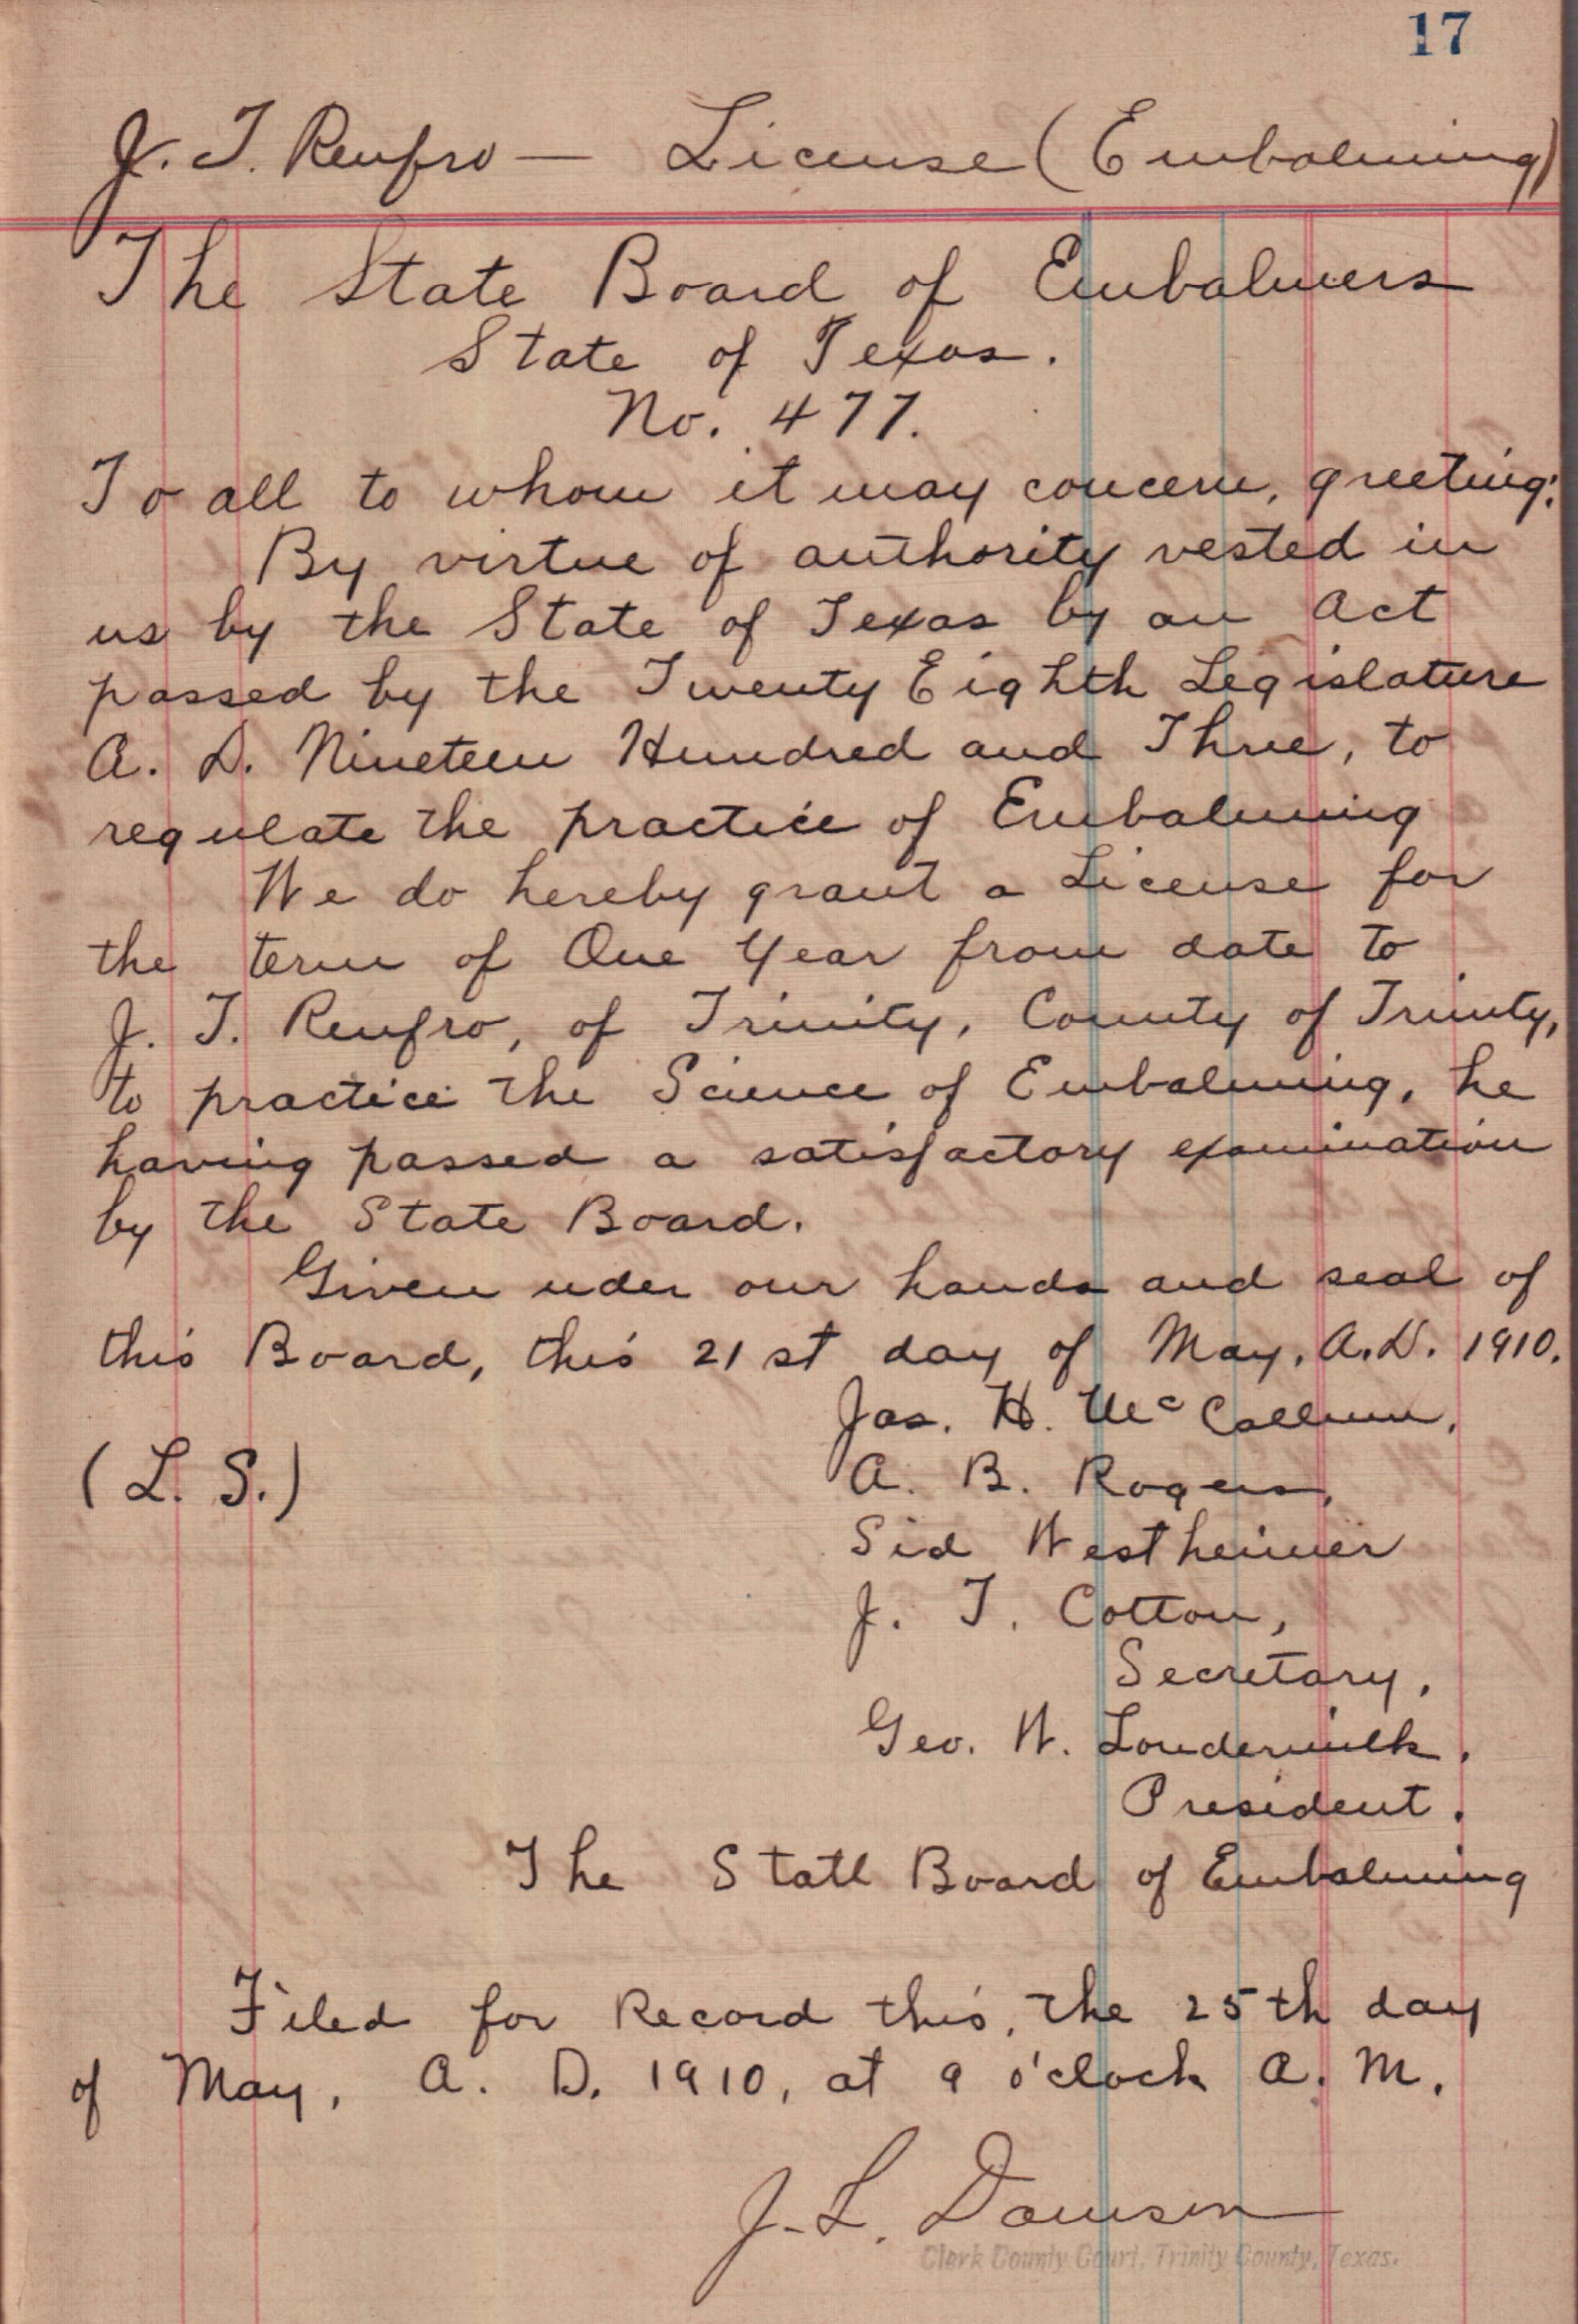 17
J. T. Renfro — License (Embalming)
The State Board of Embalmers
State of Texas.
No. 477.
To all to whom it may concern, greeting:
By virtue of authority vested in
us by the State of Texas by an Act
passed by the Twenty Eighth Legislature
A. D. Nineteen Hundred and Three, to
regulate the practice of Embalming
We do hereby grant a License for
the term of One Year from date to
J. T. Renfro, of Trinity, County of Trinity,
to practice the Science of Embalming, he
having passed a satisfactory examination
by the State Board.
Given uder our hands and seal of
this Board, this 21st day of May, A.D. 1910.
Jas. H. McCallum,
(L. S.)
A. B. Rogers,
Sid Westheimer
J. T. Cotton,
Secretary,
Geo. W. Loudermilk,
President.
The State Board of Embalming
Filed for Record this, the 25th day
of May, A. D. 1910, at 9 o'clock A. M.
J. L. Dawson
Clerk County Court, Trinity County, Texas.